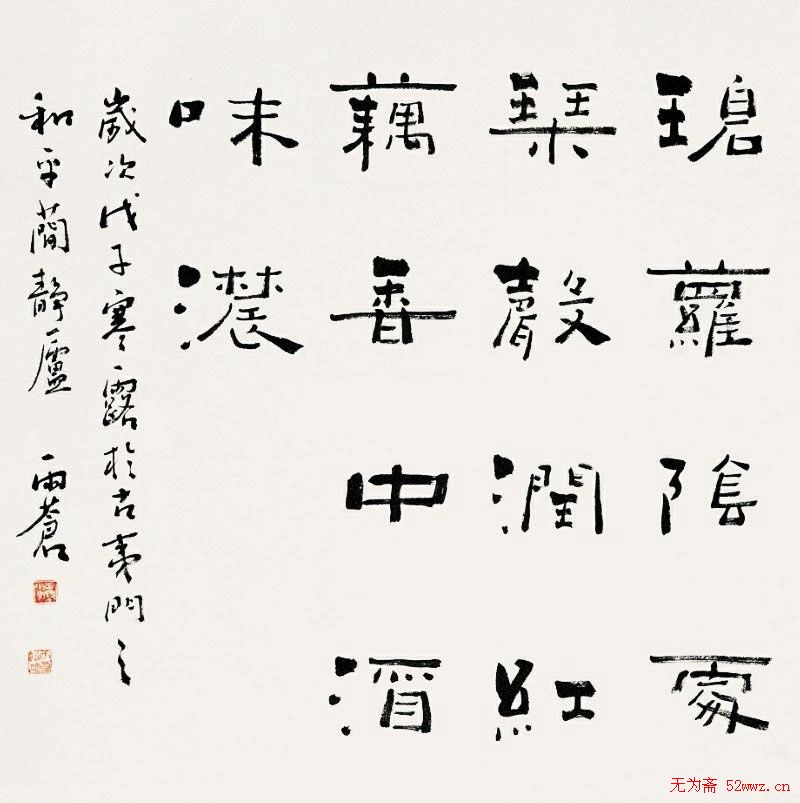 碧蘿陰裏
琴聲潤紅
藕香中酒
味濃
歲次戊子寒露於古夷門之
和平蕳靜廬 雨蒼
无为斋 52wwz.cn